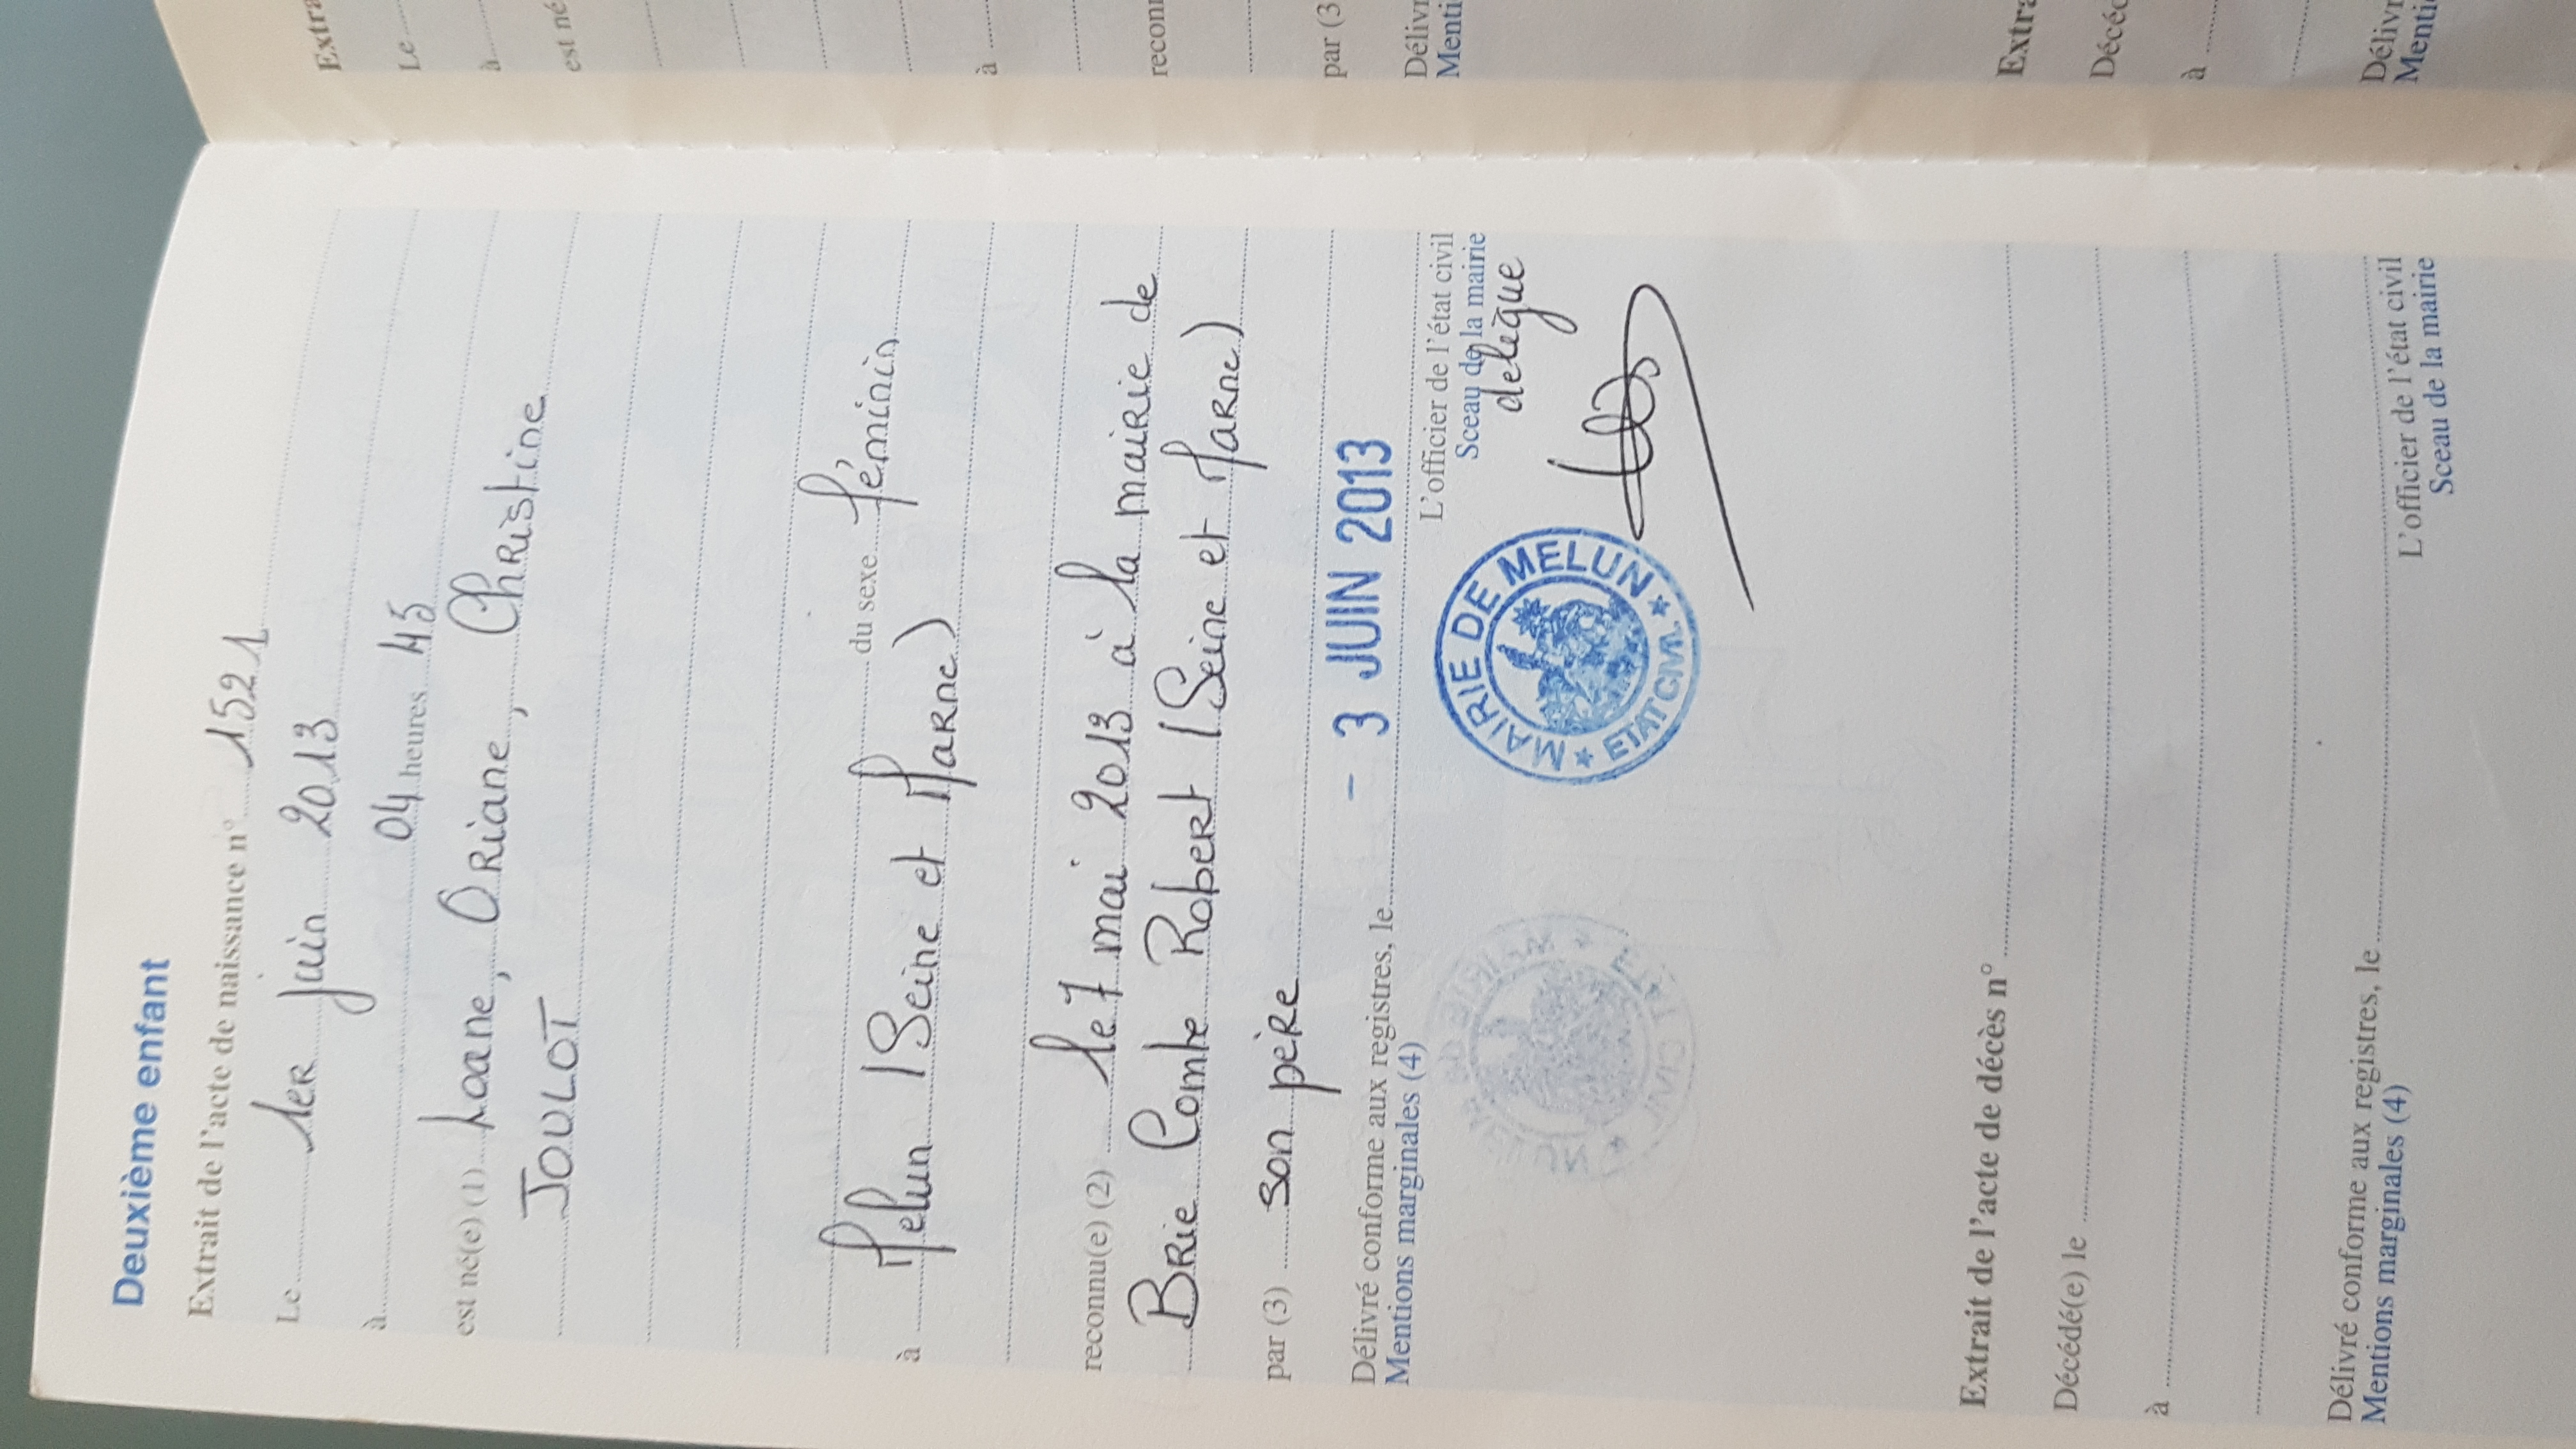 Deuxième enfant
Extrait de l'acte de naissance n° 1521
Le 1er juin 2013
à 04 heures 45
est né(e) (1) Loane, Oriane, Christine
JOULOT
du sexe féminin
à Melun (Seine et Marne)
reconnu(e) (2) le 7 mai 2013 à la mairie de
Brie Comte Robert (Seine et Marne)
par (3) son père
Délivré conforme aux registres, le - 3 JUIN 2013
Mentions marginales (4)
L'officier de l'état civil
Sceau de la mairie
délégué
MAIRIE DE MELUN
* ETAT CIVIL *
Extrait de l'acte de décès n°
Décédé(e) le
à
Délivré conforme aux registres, le
Mentions marginales (4)
L'officier de l'état civil
Sceau de la mairie
Extra
Le
à
est né
à
reconn
par (3
Délivr
Menti
Extra
Décéd
à
Délivr
Menti